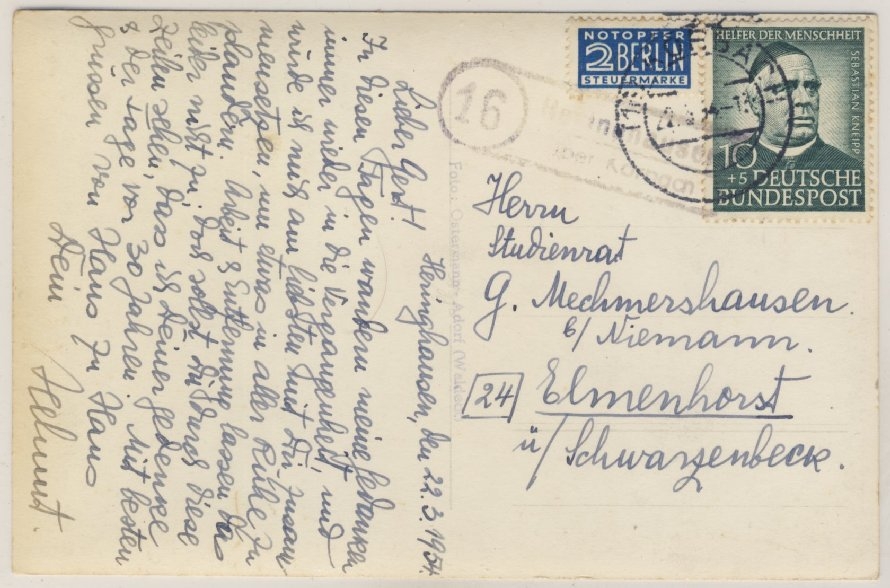 Heringhausen, den 22.3.1954.
Lieber Gert!
In diesen Tagen wandern meine Gedanken
immer wieder in die Vergangenheit, und
würde ich mich am liebsten mit Dir zusam-
mensetzen, um etwas in aller Ruhe zu
plaudern. Arbeit & Entfernung lassen das
leider nicht zu. Doch sollst Du durch diese
Zeilen sehen, dass ich Deiner gedenke
& der Tage vor 30 Jahren. Mit besten
Grüssen von Haus zu Haus
Dein
Helmut.
NOTOPFER
2 BERLIN
STEUERMARKE
HELFER DER MENSCHHEIT
SEBASTIAN KNEIPP
10
+5 DEUTSCHE
BUNDESPOST
16
über
Herrn
Studienrat
G. Mechmershausen
b/ Niemann.
24 Elmenhorst
ü/ Schwarzenbeck.
Foto: Ostermeng, Adorf (Waldeck)